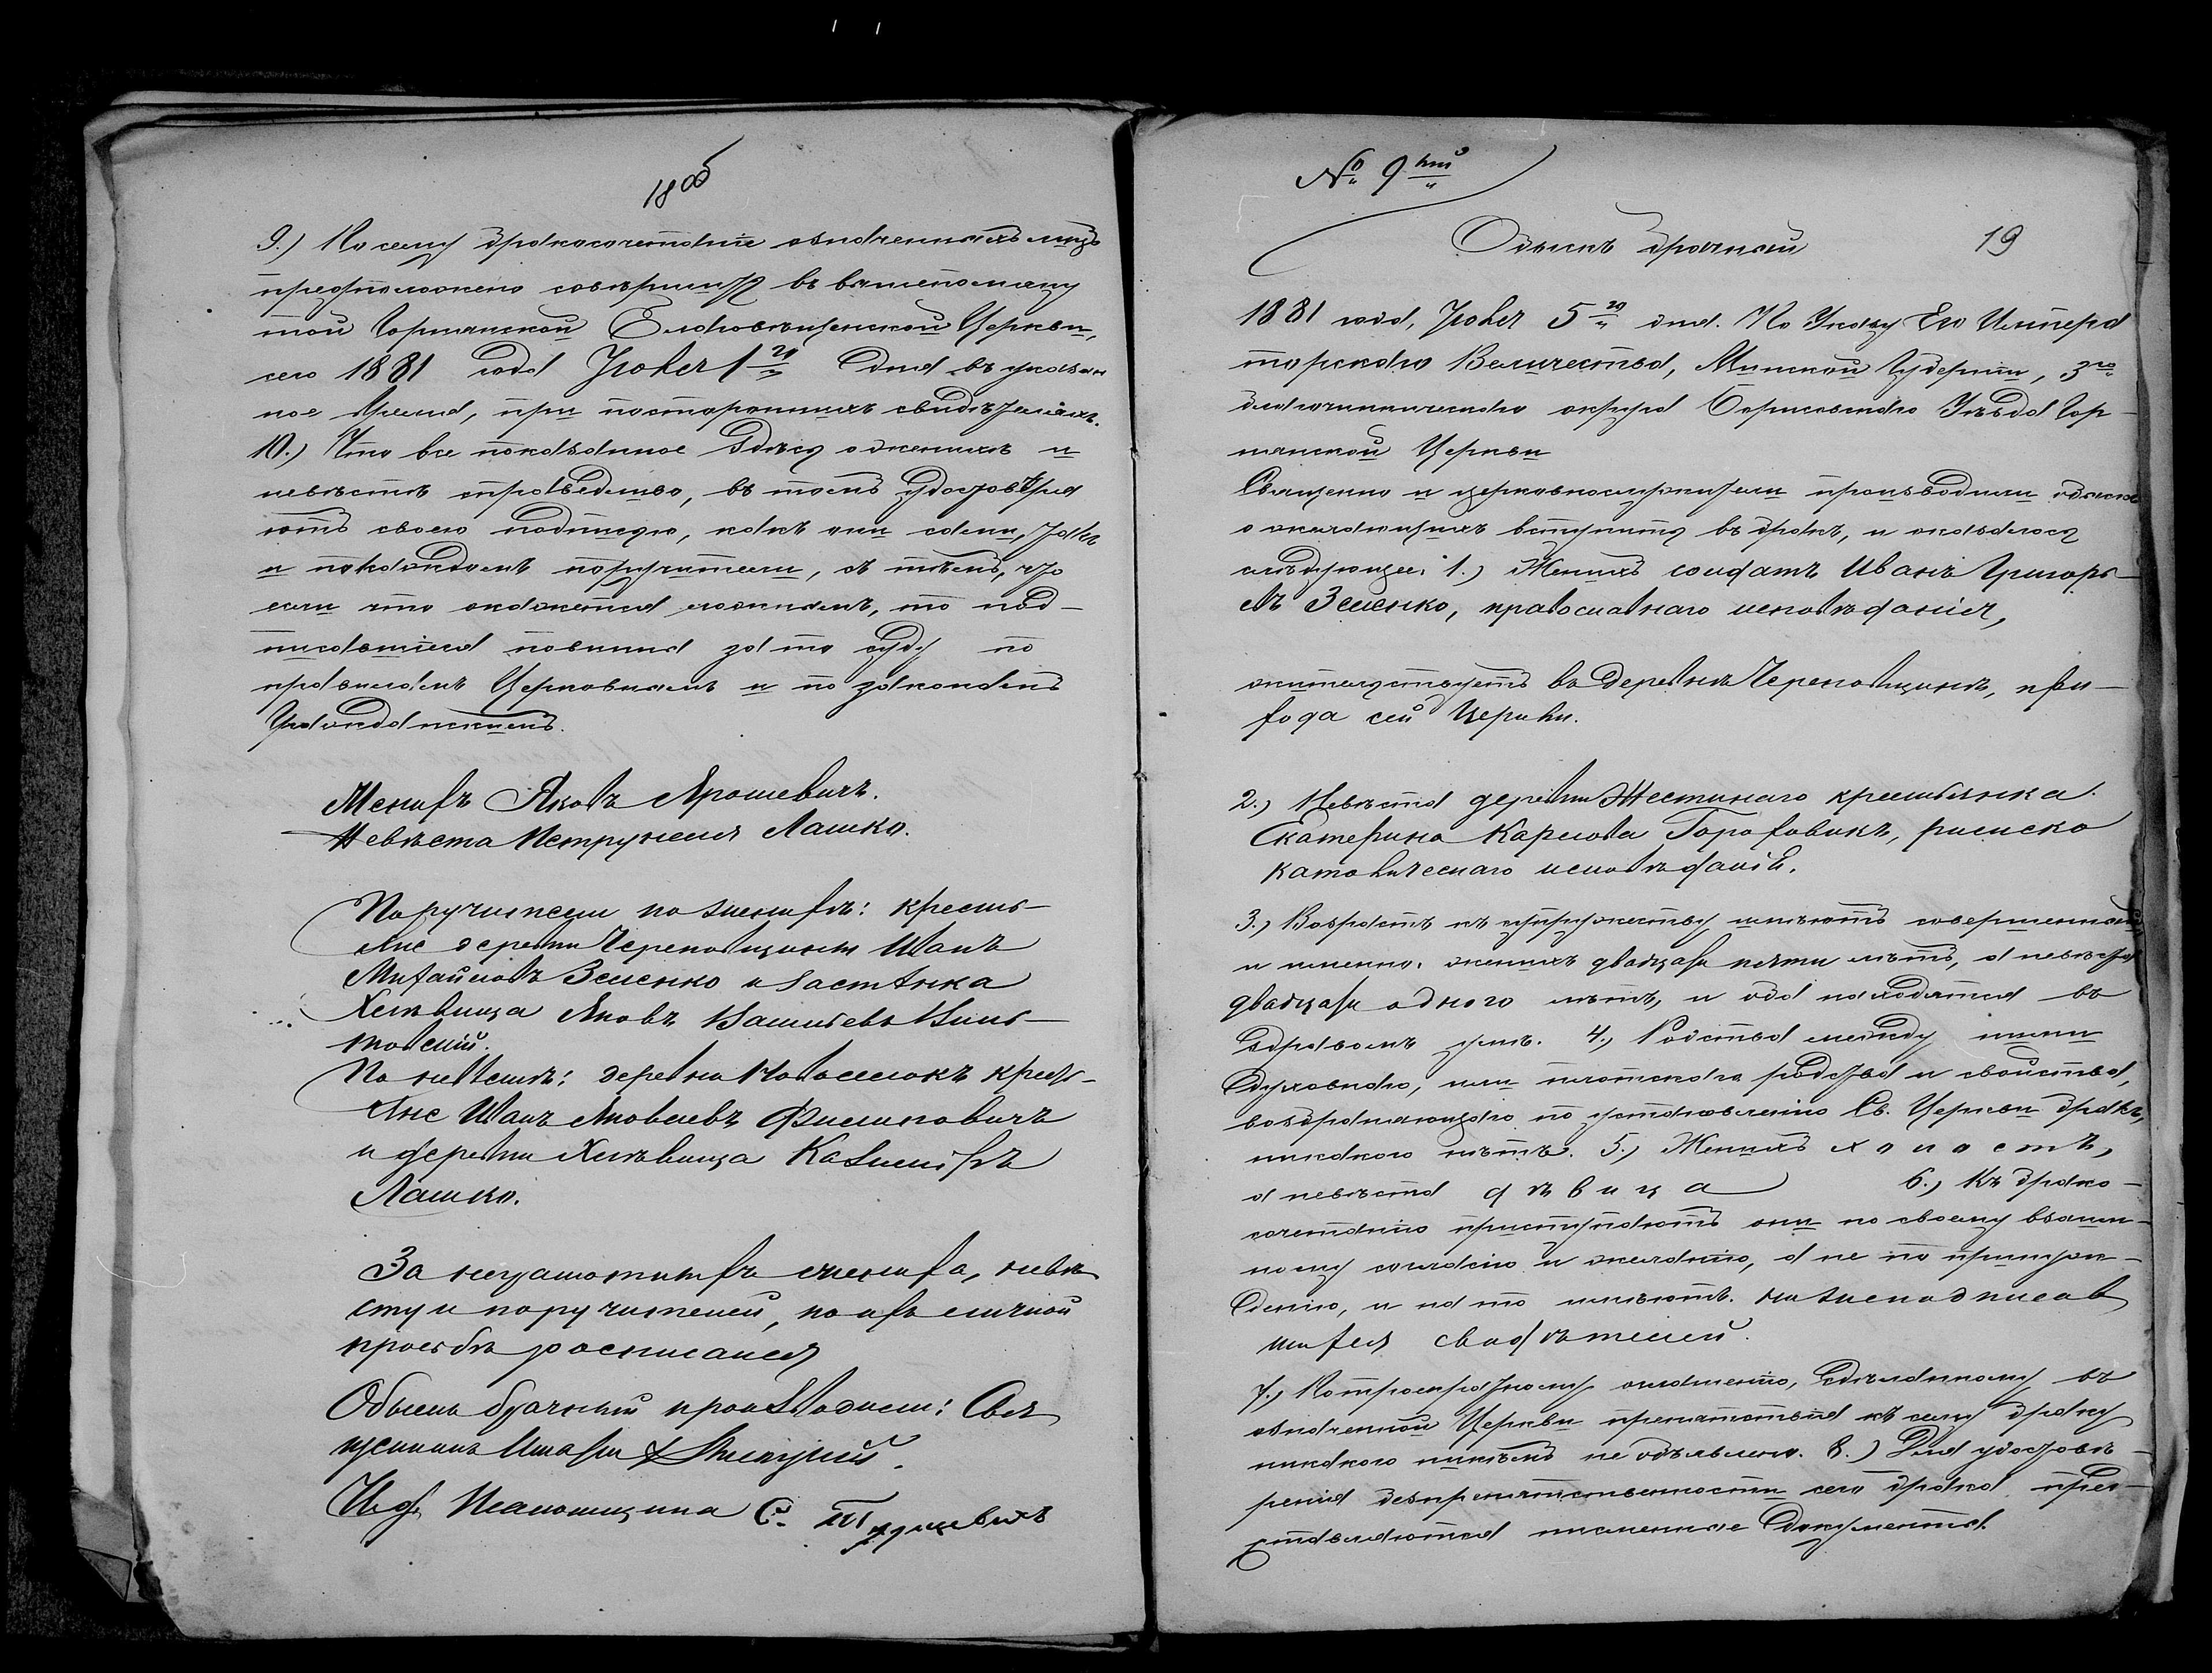 18 об
9.) По сему бракосочетаніе означенныхъ лицъ
предположено совершить въ вышепомяну
той Гортанской Благовѣщенской Церкви,
сего 1881 года Ноября 1го дня въ указан
ное время, при постороннихъ свидѣтеляхъ.
10.) Что все показанное здѣсь о женихѣ и
невѣстѣ справедливо, въ томъ удостовѣря
ютъ своею подписью, какъ они сами, такъ
и по каждомъ поручители, съ тѣмъ, что
если что окажется ложнымъ, то под-
писавшіеся повинны за то суду по
правиламъ Церковнымъ и по законамъ
Гражданскимъ.
Женихъ Яковъ Ярошевичъ.
Невѣста Петрунеля Лашко.
Поручители по женихѣ: кресть-
яне деревни Череповщины Иванъ
Михайловъ Зеленко и застѣнка
Хелѣвища Яковъ Васильевъ
По невѣстѣ: деревни Новоселокъ кресть-
яне Иванъ Яковлевъ Филиповичъ
и деревни Хелѣвища Казиміръ
Лашко.
За неграмотныхъ жениха, невѣ
сту и поручителей, по ихъ личной
просьбѣ росписался
Обыскъ брачный производили: Свя
щенникъ
И. д. Псаломщика С.
№ 9тый
Обыскъ брачный
19
1881 года, Ноября 5го дня. По Указу Его Импера
торскаго Величества, Минской Губерніи, 3го
благочинническаго округа Борисовскаго Уѣзда Гор-
танской Церкви
Священно и церковнослужители производили обыскъ
о желающихъ вступить въ бракъ, и оказалось
слѣдующее: 1.) Женихъ солдатъ Иванъ Григорь-
евъ Зеленко, православнаго исповѣданія,
жительствуетъ въ деревнѣ Череповщинѣ, при-
хода сей Церкви.
2.) Невѣста деревни Жестинаго крестьянка
Екатерина Карлова Гороховикъ, римско
католическаго исповѣданія.
3.) Возрастъ къ супружеству имѣютъ совершенный
и именно: женихъ двадцати пяти лѣтъ, а невѣста
двадцати одного лѣтъ, и оба находятся въ
здравомъ умѣ. 4.) Родства между ними
духовнаго, или плотскаго родства и свойства,
возбраняющаго по установленію Св. Церкви бракъ,
никакого нѣтъ. 5.) Женихъ холостъ,
а невѣста дѣвица 6.) Къ брако-
сочетанію приступаютъ они по своему взаим-
ному согласію и желанію, а не по принуж-
денію, и на то имѣютъ. ниженаписав
шихся свидѣтелей.
7.) По троекратному оглашенію, сдѣланному въ
означенной Церкви препятствія къ сему браку
никакого никѣмъ не объявлено. 8.) Для удостовѣ-
ренія безпрепятственности сего брака пред-
ставляются письменные документы.